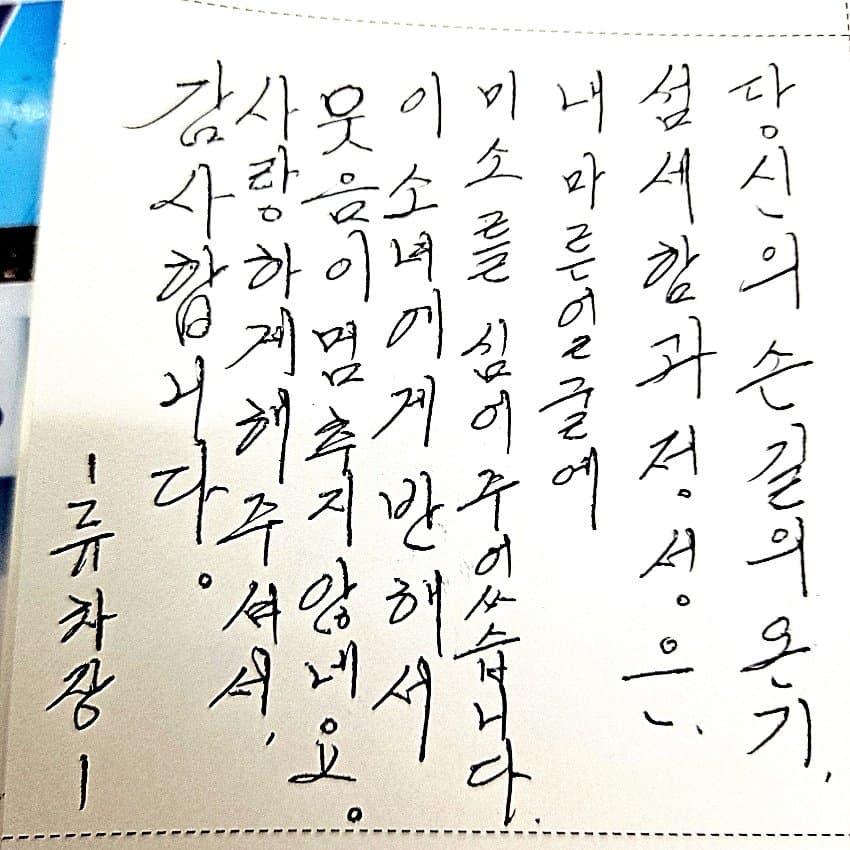 당신의 손길의 온기,
섬세함과 정성은,
내 마른 얼굴에
미소를 심어주었습니다.
이 소녀에게 반해서
웃음이 멈추지 않네요。
사랑하게 해주셔서,
감사합니다。
-류차장-